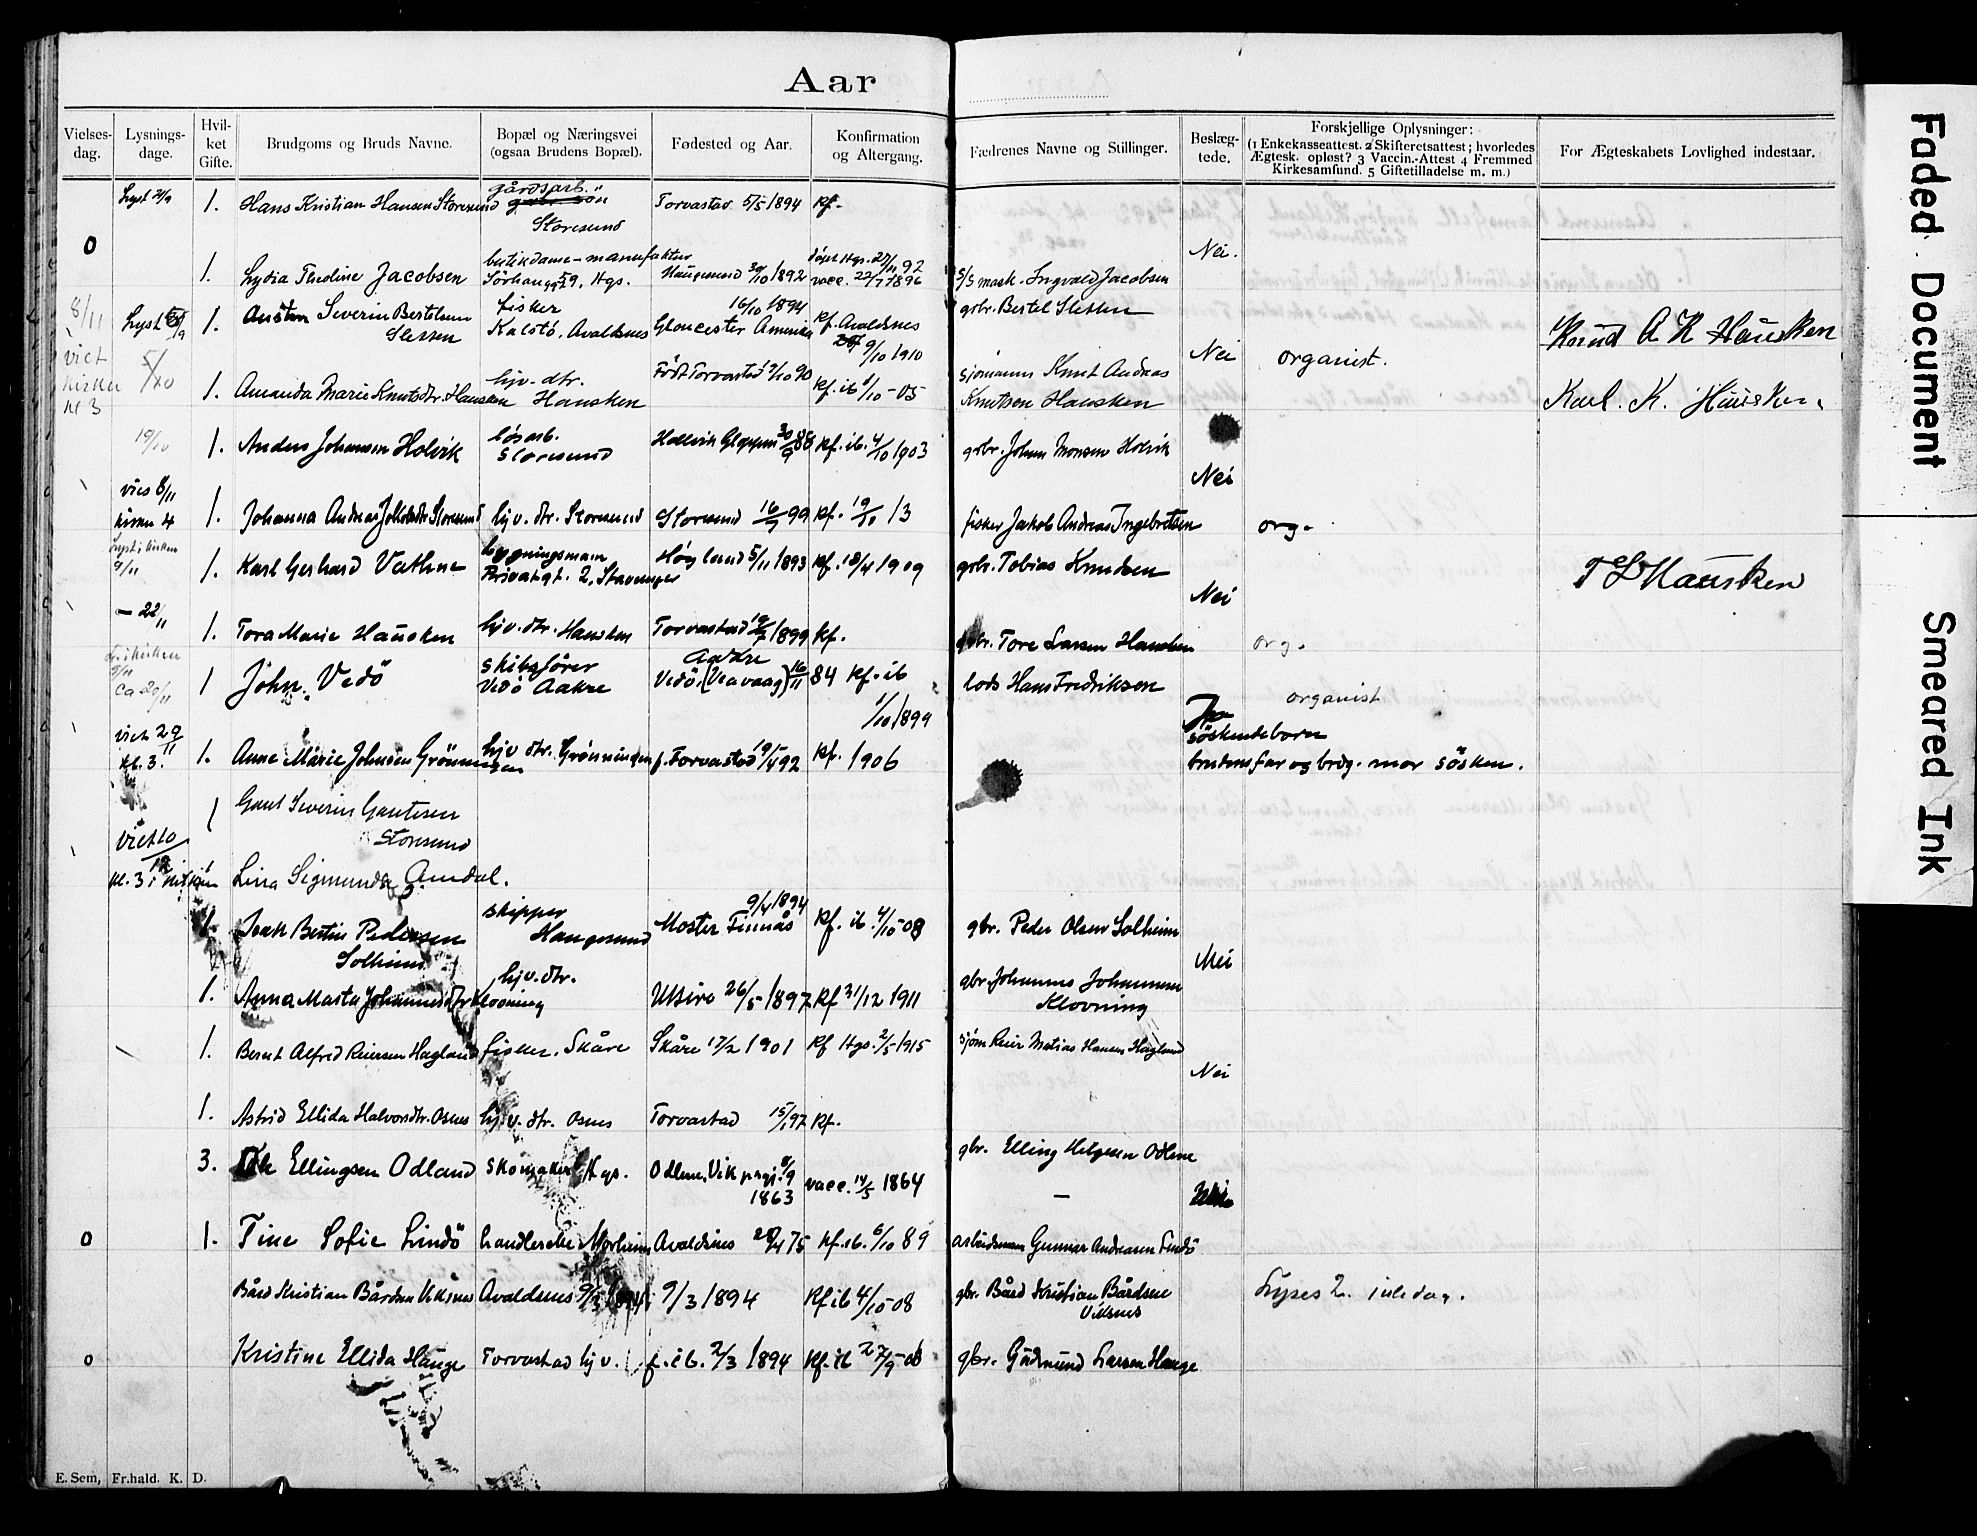 Aar
Vielses-dag.
Lysnings-dage.
Hvil-ket Gifte.
Brudgoms og Bruds Navne.
Bopæl og Næringsvei (ogsaa Brudens Bopæl).
Fødested og Aar.
Konfirmation og Altergang.
Fædrenes Navne og Stillinger.
Beslæg-tede.
Forskjellige Oplysninger: (1 Enkekasseattest. 2 Skifteretsattest; hvorledes Ægtesk. opløst? 3 Vaccin.-Attest 4 Fremmed Kirkesamfund. 5 Giftetilladelse m. m.)
For Ægteskabets Lovlighed indestaar.
Lyst 21/9 1. Hans Kristian Hansen Storesund gårdsarb. Storesund Torvastad 5/5 1894 kf.
0
Nei.
1. Lydia Thodine Jacobsen butikdame - manufaktur Sörhaugg 59, Hgs. Haugesund 30/10 1892 döpt Hgs. 27/11 92 vacc. 22/7 1896 s/s mask. Ingvald Jacobsen
8/11 Lyst 1. Severin Bertelsen Sletten fisker Kalstö, Avaldsnes 16/10 1894 Gloucester Amerika kf. Avaldsnes 9/10 1910 gbr. Bertel Sletten
viet kirken kl 3
5/10
Nei organist.
Knud A K Hausken
1. Amanda Marie Knutsdtr. Hausken hjv. dtr. Hausken Födt Torvastad 9/10 90 kf. ib 1/10 - 05 sjömann Knut Andreas Knutsen Hausken
Karl. K. Hausken
19/10 1. Anders Johansen Holvik lösarb. Storesund Gloppen 30/9 88 kf. ib. 4/10 1903 gbr. Johan Monsen Holvik
Nei
vies 8/11 kirken 4 1. Johanna Andrea Storesund hjv. dtr. Storesund Storesund 16/7 99 kf. 19/10 13 fisker Jakob Andreas Ingebretsen org.
Lyst i kirken 9/11 1. Karl Gerhard Vathne bygningsmann Privatgt. 2, Stavanger Högland 5/11 1893 kf. 18/4 1909 gbr. Tobias Knudsen
Nei
T L Hausken
- 22/11 1. Tora Marie Hausken hjv. dtr. Hausken Torvastad 1899 kf. gbr. Tore Larsen Hausken org.
ca 20/11 1 John Vedö skibsförer Vedö Aakre Aakre Vedö, (Veavaag) 16/11 84 kf. ib 1/10 1899 lods Hans Fredriksen organist
söskendeborn
viet 29/11 kl. 3. 1. Anne Marie Johnsen Grönningen hjv. dtr. Grönningen f. Torvastad 92 kf. 1906 brudens far og brdg. mor sösken.
1 Gaut Severin Gautesen Storesund
Viet 10/12
kl. 3 i kirken Lina Sigmunda Amdal.
1. Isak Bertin Pedersen Solheim skipper Haugesund 9/4 1894 Moster Finnås kf. ib. 4/10 - 08 gbr. Peder Olsen Solheim
Nei
1. Anna Marta Johannesdtr Klovning hjv. dtr. Utsire 26/5 1897 kf 31/12 1911 gbr. Johannes Johannesen Klovning
1. Bernt Alfred Reiersen Hagland fisker, Skåre Skåre 17/2 1901 kf Hgs. 2/5 1915 sjöm Reier Matias Hansen Hagland
Nei
1. Astrid Ellida Halvorsdtr. Osnes hjv. dtr. Osnes Torvastad 15/1 97 kf.
3. Ole Ellingsen Odland skomaker Hgs. Odlene, Vik prgj. 8/9 1863 vacc. 14/5 1864 gbr. Elling Helgesen Odlene
0 1. Tine Sofie Lindö handlerske Norheim Avaldsnes 75 kf. ib. 6/10 89 arbeidsmann Gunnar Andreasen Lindö
Bård Kristian Bårdsen Viksnes Avaldsnes 9/3 1894 9/3 1894 kf ib 4/10 - 08 gbr. Bård Kristian Bårdsen Viksnes Lyses 2. juledag.
0 Kristine Ellida Hauge Torvastad hjv. f. ib. 2/3 1894 kf. ib 27/9 - 08 gbr. Gudmund Larsen Hauge
E. Sem, Fr.hald. K. D.
Faded Document
Smeared Ink